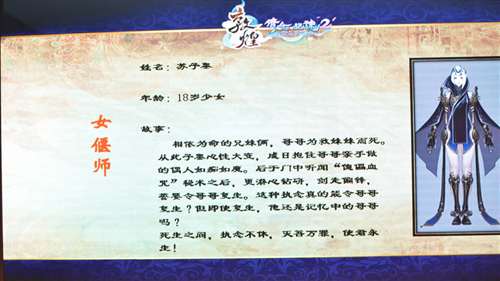 敦煌
倩女幽魂2
姓名：苏子墨
年龄：18岁少女
女偃师
故事：
相依为命的兄妹俩，哥哥为救妹妹而死。
从此子墨心性大变，成日抱住哥哥亲手做
的偶人如痴如魔。后于门中听闻“傀儡血
咒”秘术之后，更潜心钻研，剑走偏锋，
誓要令哥哥复生。这种执念真的能令哥哥
复生？但即使复生，他还是记忆中的哥哥
吗？
死生之间，执念不休，灭吾万罪，使君永
生！